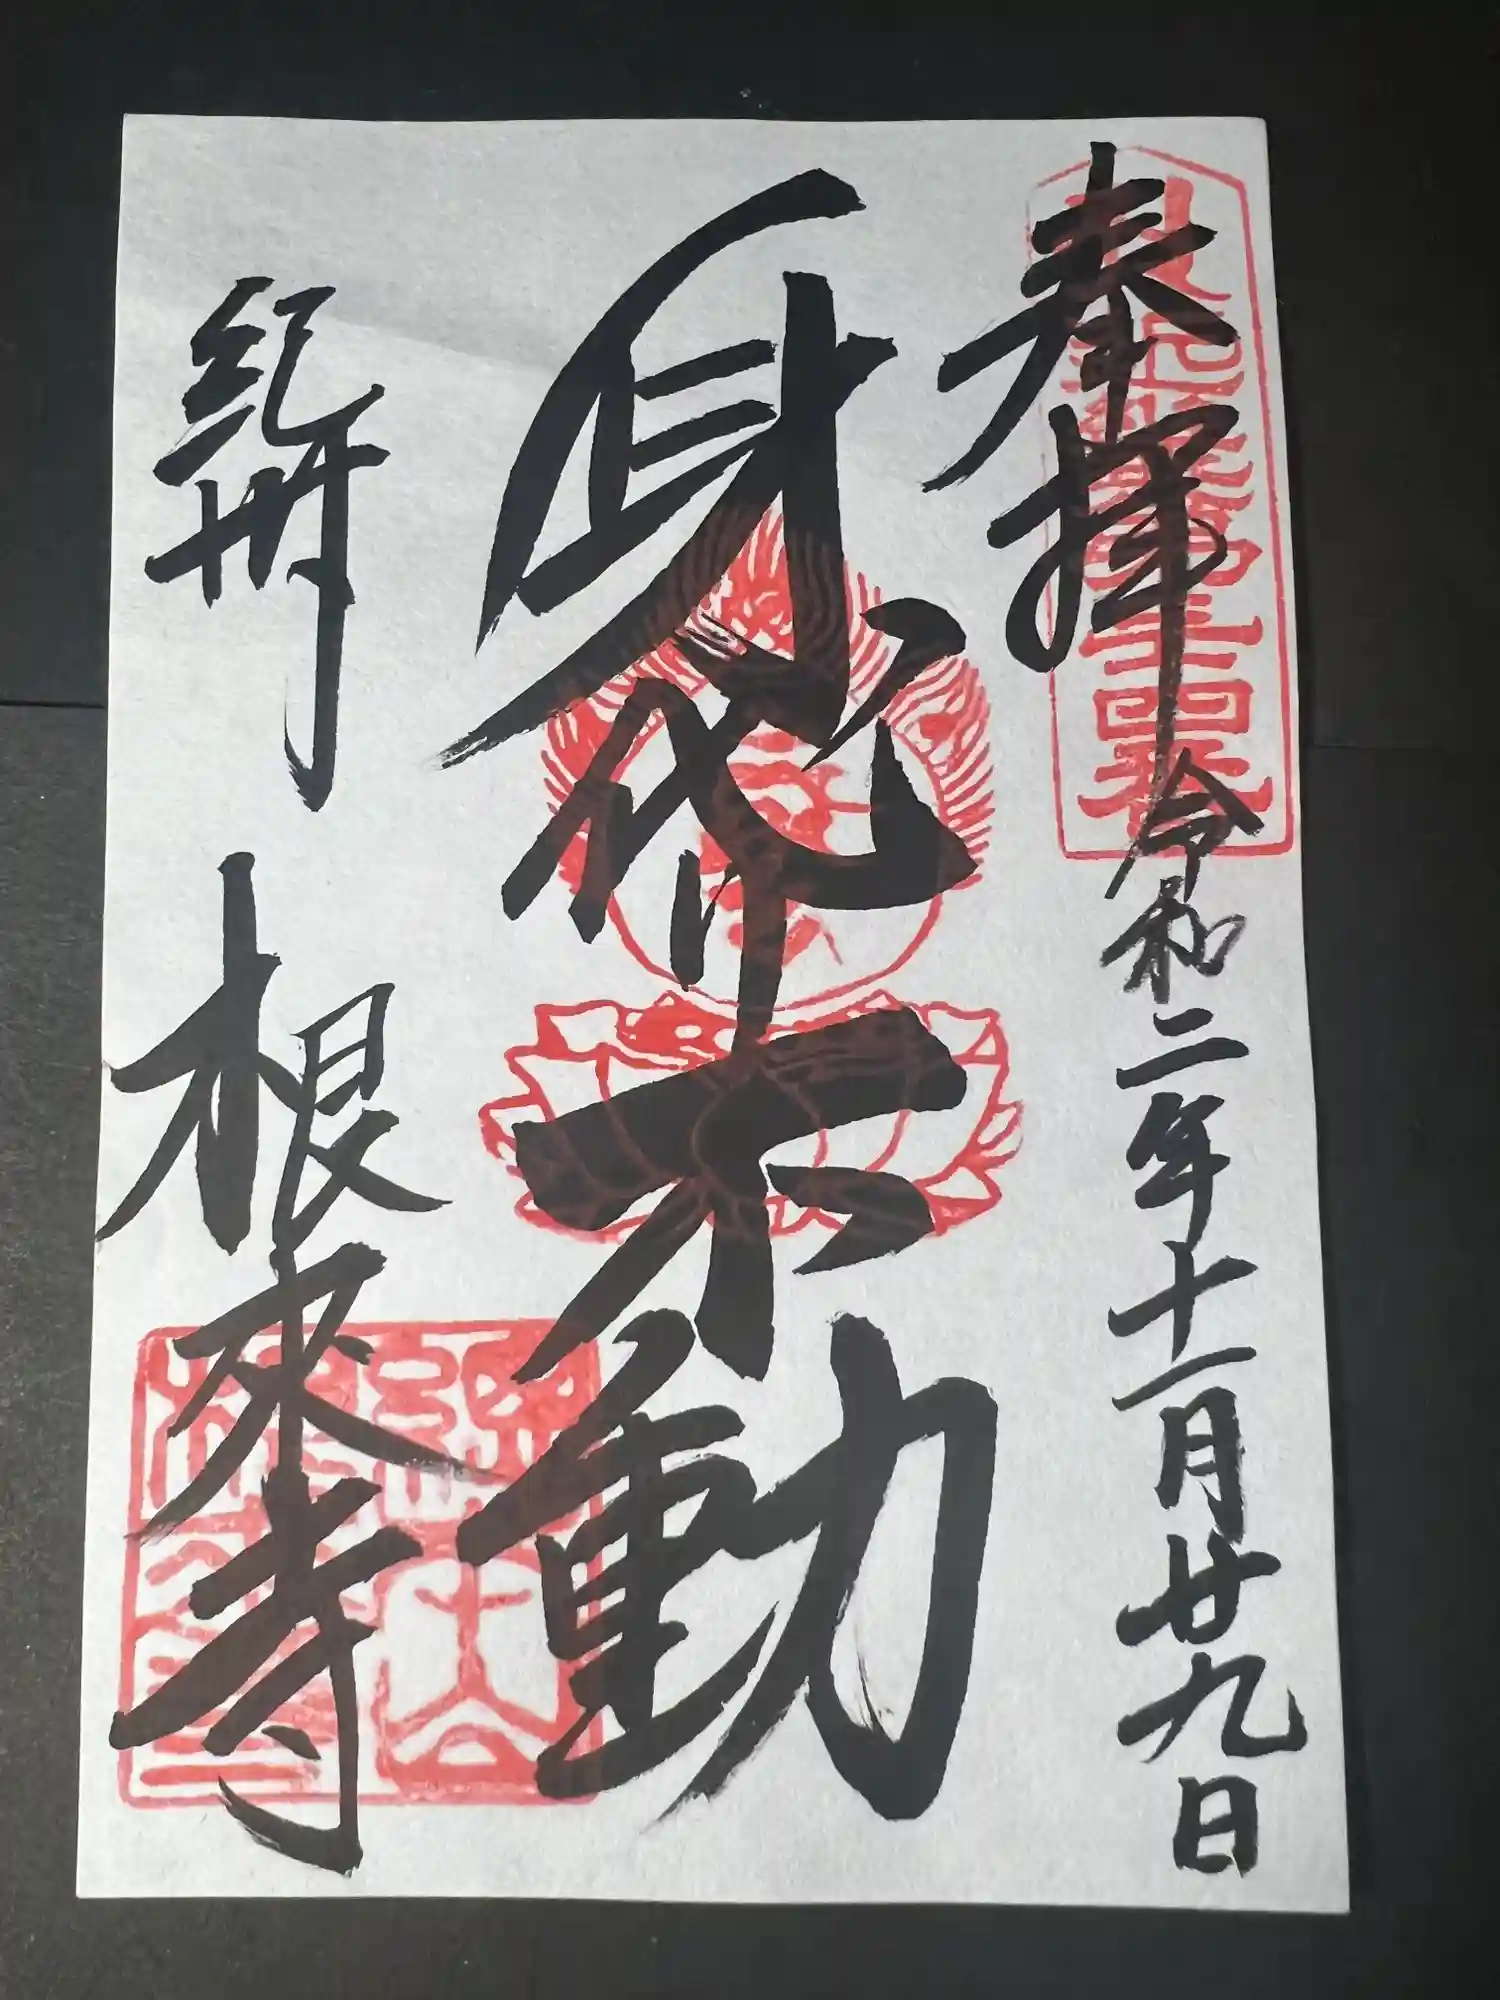 奉拝 令和二年十一月廿九日
身代不動
紀州 根来寺